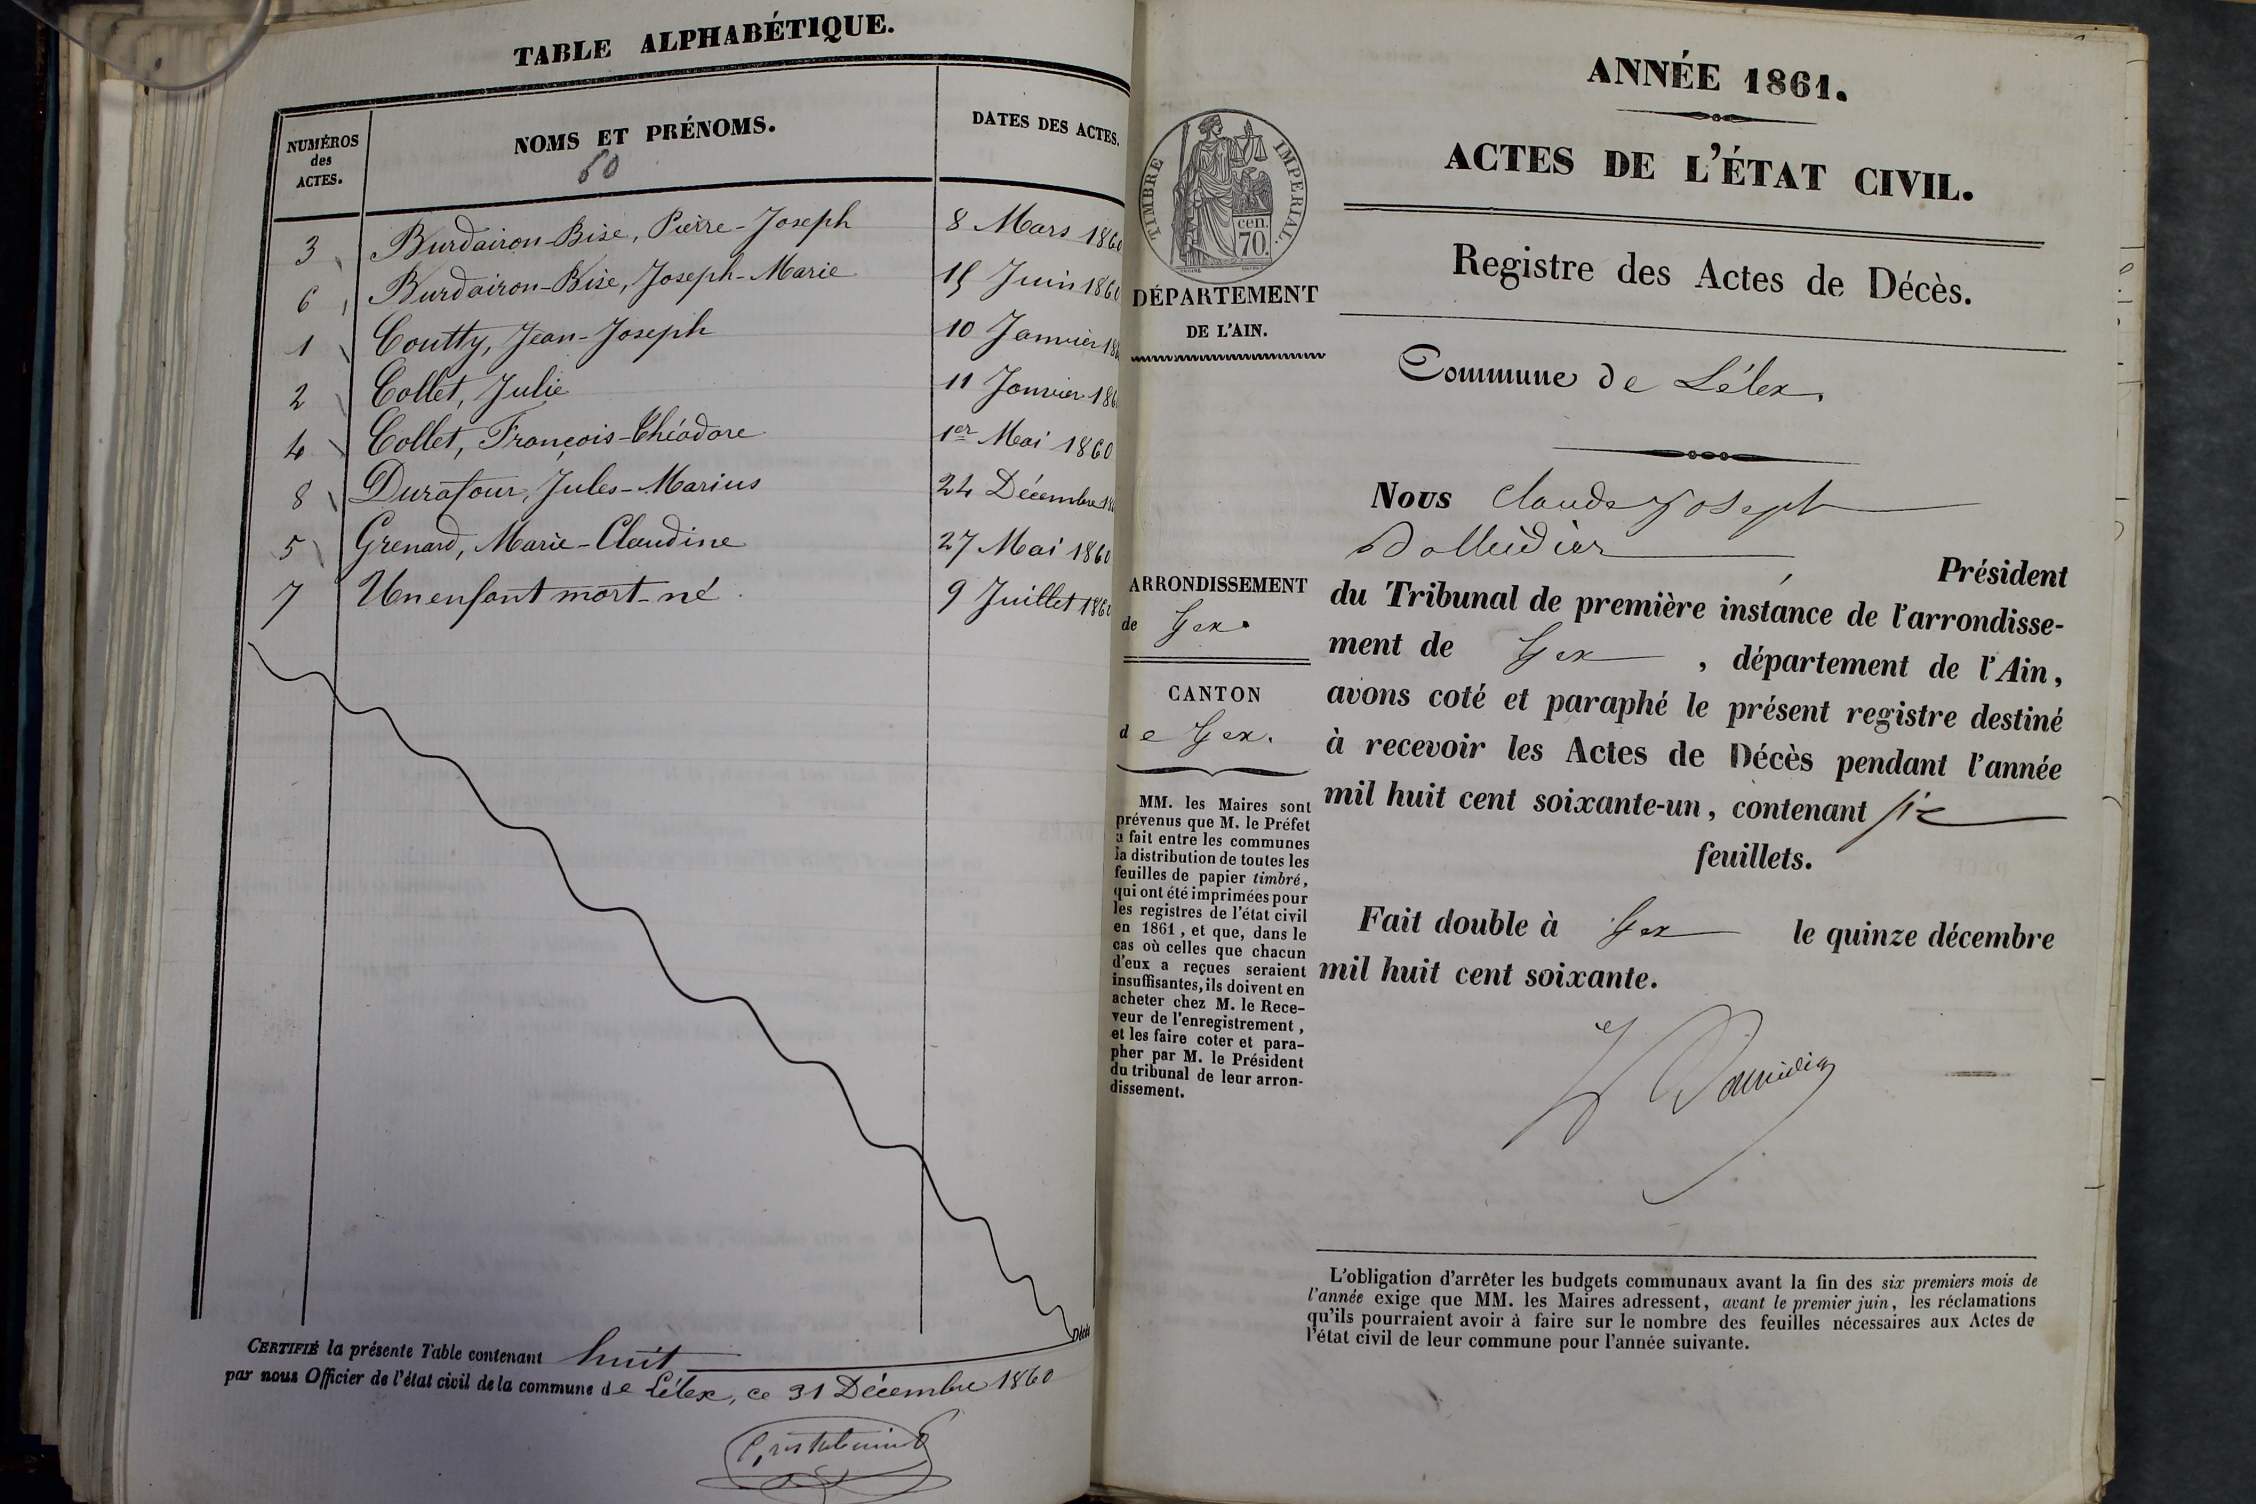 TABLE ALPHABÉTIQUE.
NUMÉROS
des
ACTES.
NOMS ET PRÉNOMS.
60
DATES DES ACTES.
3 Burdairon-Bise, Pierre-Joseph 8 Mars 1860
6 Burdairon-Bise, Joseph-Marie 15 Juin 1860
1 Coutty, Jean-Joseph 10 Janvier 18
2 Collet, Julie 11 Janvier 186
4 Collet, François-Théodore 1er Mai 1860
8 Durafour, Jules-Marius 24 Décembre 18
5 Grenard, Marie-Claudine 27 Mai 1860
7 Un enfant mort-né 9 Juillet 1860
Décès
CERTIFIÉ la présente Table contenant huit
par nous Officier de l'état civil de la commune de Lélex, ce 31 Décembre 1860
TIMBRE IMPERIAL.
cen.
70.
DÉPARTEMENT
DE L'AIN.
ARRONDISSEMENT
de Gex.
CANTON
de Gex.
MM. les Maires sont
prévenus que M. le Préfet
a fait entre les communes
la distribution de toutes les
feuilles de papier timbré,
qui ont été imprimées pour
les registres de l'état civil
en 1861, et que, dans le
cas où celles que chacun
d'eux a reçues seraient
insuffisantes, ils doivent en
acheter chez M. le Rece-
veur de l'enregistrement,
et les faire coter et para-
pher par M. le Président
du tribunal de leur arron-
dissement.
ANNÉE 1861.
ACTES DE L'ÉTAT CIVIL.
Registre des Actes de Décès.
Commune de Lélex.
Nous Claude Joseph
Président
du Tribunal de première instance de l'arrondisse-
ment de Gex, département de l'Ain,
avons coté et paraphé le présent registre destiné
à recevoir les Actes de Décès pendant l'année
mil huit cent soixante-un, contenant six
feuillets.
Fait double à Gex le quinze décembre
mil huit cent soixante.
L'obligation d'arrêter les budgets communaux avant la fin des six premiers mois de
l'année exige que MM. les Maires adressent, avant le premier juin, les réclamations
qu'ils pourraient avoir à faire sur le nombre des feuilles nécessaires aux Actes de
l'état civil de leur commune pour l'année suivante.